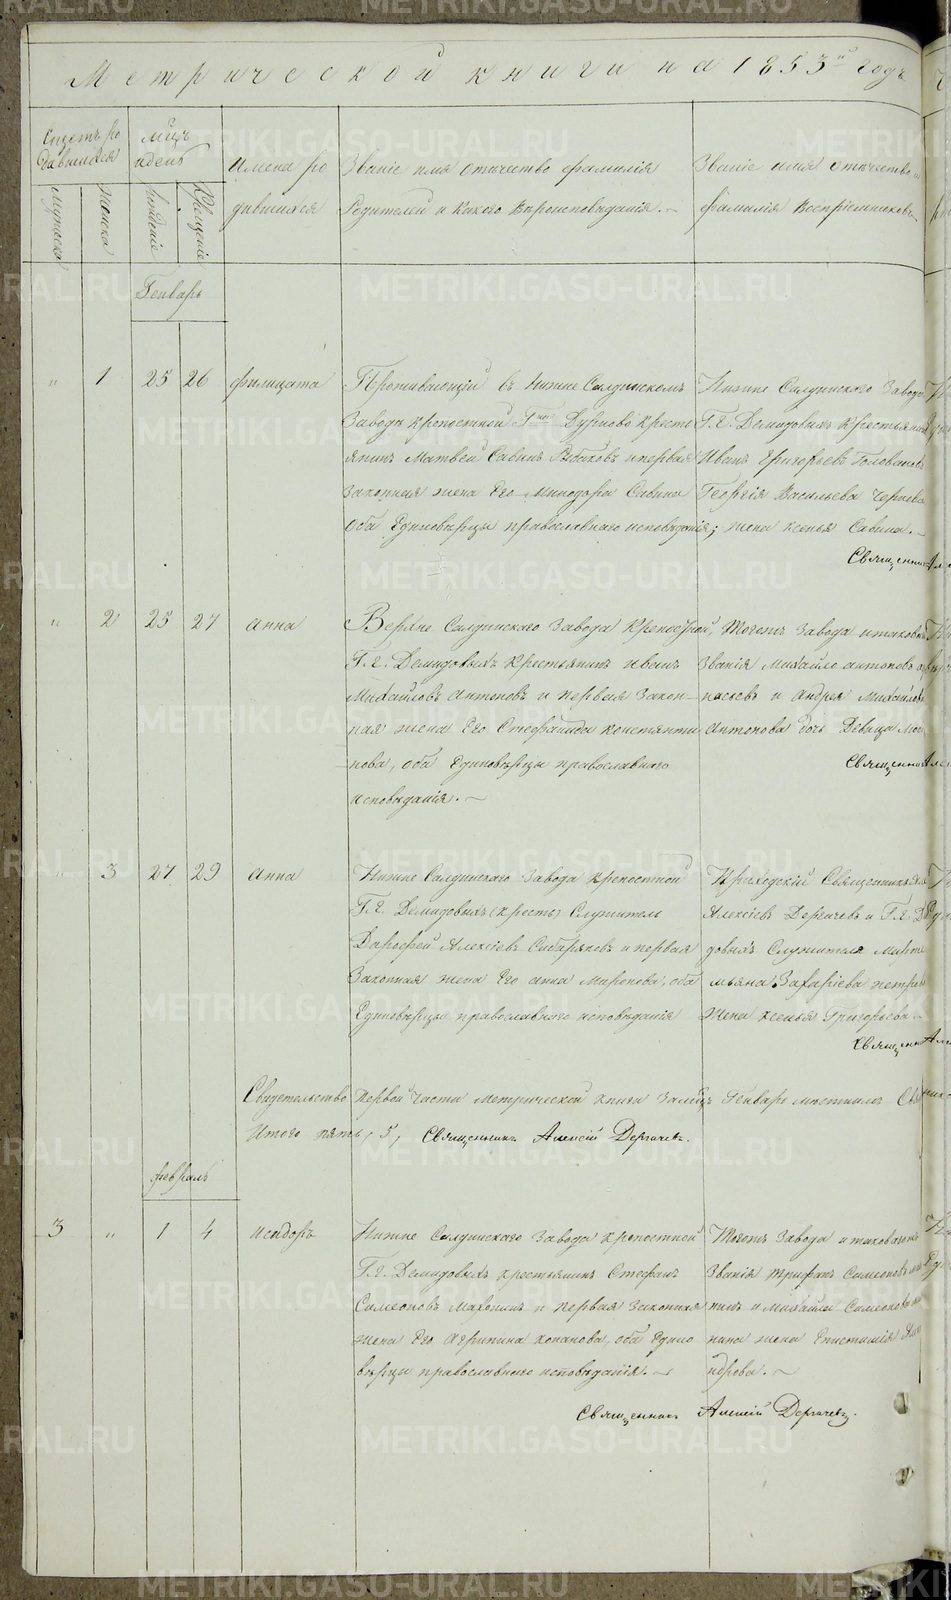 Метрической книги на 1853й годъ
Счетъ ро
дившихся
мужеска
женска
мцъ
и день
рожденіе
Крещеніе
Имена ро
дившихся
Званіе имя отчество фамилія
Родителей и какого Вѣроисповѣданія. —
Званіе имя отчество и
фамилія Воспріемниковъ
Генварь
" 1 25 26 Филицата
Проживающій въ Нижне Салдинскомъ
Заводѣ крепостной Гжи Дурново кресть
янинъ Матвей Савинъ Рыбаковъ и первая
законная жена Его Минодора Савина
оба Единовѣрцы православнаго исповѣданія;
Нижне Салдинскаго Завода
Г.г. Демидовыхъ крестьянинъ
Иванъ Григорьевъ Головановъ
Георгія Васильева
жена ксенья Савина. —
Священник
" 2 25 27 Анна
Верхне Салдинскаго Завода крепостной
Г.г. Демидовыхъ крестьянинъ Иванъ
Михайловъ Антоновъ и первая Закон-
ная жена Его Стефанида констянти
нова, оба Единовѣрцы православнаго
исповѣданія. —
Тогожъ Завода и таковаго
Званія Михайло Антоновъ
и Андрея Михайлова
Антонова дочь Девица
Священник
" 3 27 29 Анна
Нижне Салдинскаго Завода крепостной
Г.г. Демидовыхъ (кресть) Служитель
Дарофей Алексіевъ Сибиряковъ и первая
Законная жена Его Анна Миронова, оба
Единовѣрцы православнаго исповѣданія
Приходскій Священникъ
Алексіевъ Дергачевъ и Г.г. Деми
довыхъ Служителя
Захаріева
жена ксенья Григорьева. —
Священник
Свидетельство Первой части метрической книги За мцъ Генварь
Итого пять, 5, Священникъ Алексій Дергачевъ.
Февраль
3 " 1 4 Исидоръ
Нижне Салдинскаго Завода крепостной
Г.г. Демидовыхъ крестьянинъ Стефанъ
Симеоновъ Махонинъ и первая законная
жена Его Агрипина кононова, оба Едино
вѣрцы православнаго исповѣданія. —
Тогожъ Завода и таковагожъ
Званія Трифанъ Симеоновъ
нинъ и Михайла Симеонова
нина жена Епистимія
ндрова. —
Священникъ Алексій Дергачевъ.
METRIKI.GASO-URAL.RU